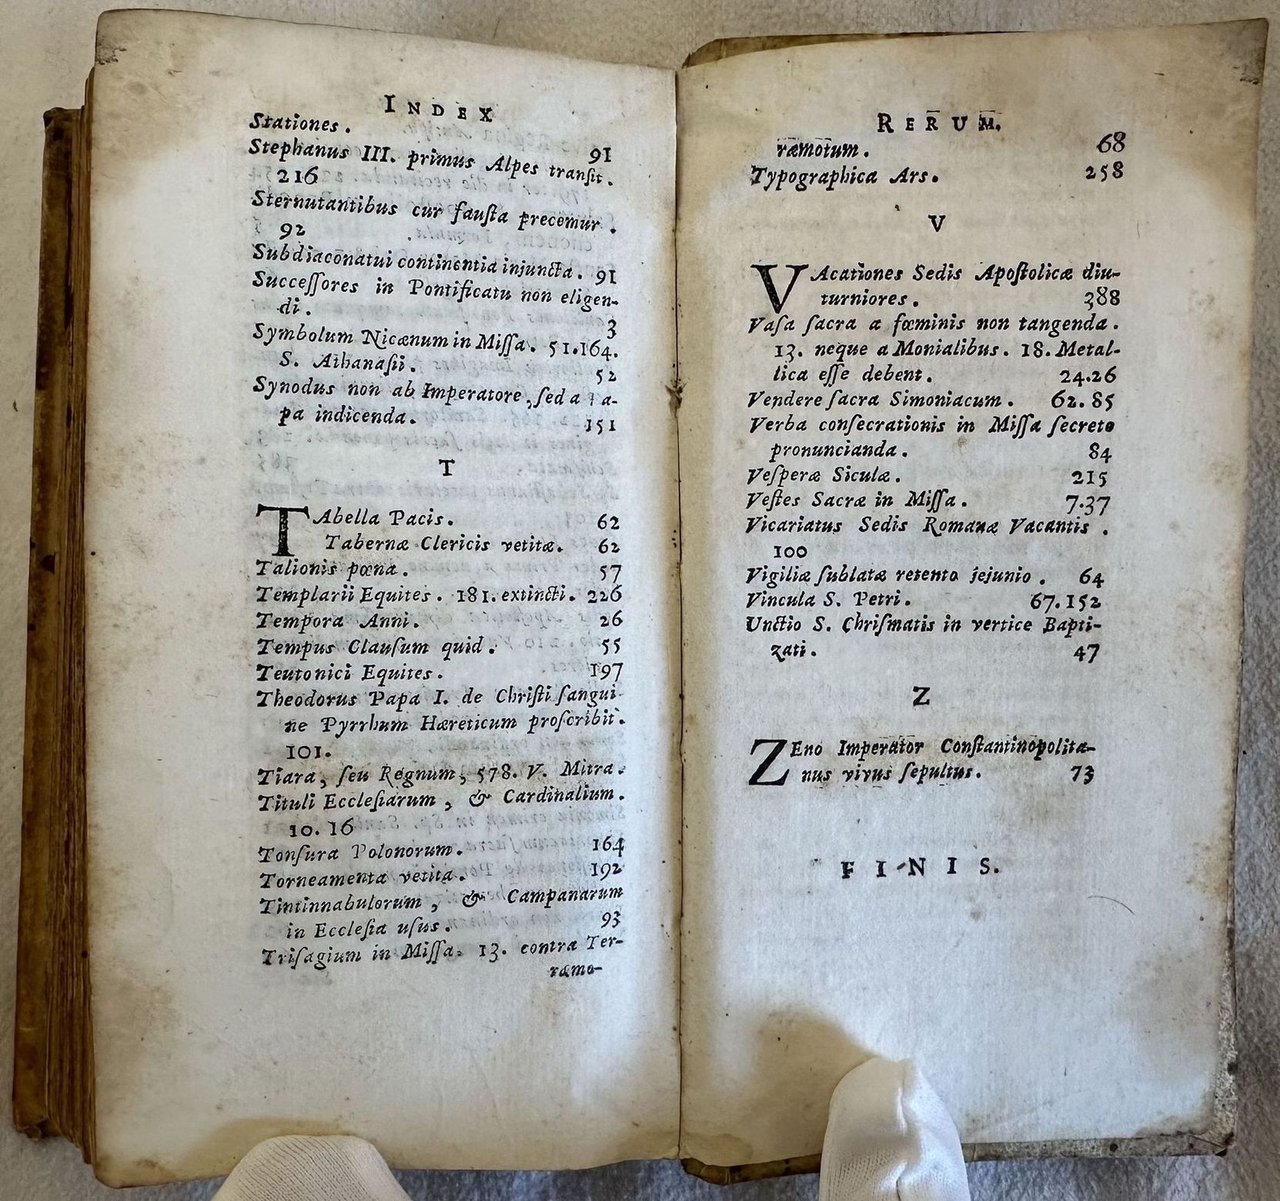 INDEX
Stationes. 91
Stephanus III. primus Alpes transit.
216
Sternutantibus cur fauſta precemur.
92
Subdiaconatui continentia injuncta. 91
Succeſſores in Pontificatu non eligen-
di. 3
Symbolum Nicænum in Miſſa. 51.164.
S. Athanaſii. 52
Synodus non ab Imperatore, ſed a Pa-
pa indicenda. 151
T
TAbella Pacis. 62
Tabernæ Clericis vetitæ. 62
Talionis pœna. 57
Templarii Equites. 181. extincti. 226
Tempora Anni. 26
Tempus Clauſum quid. 55
Teutonici Equites. 197
Theodorus Papa I. de Chriſti ſangui-
ne Pyrrhum Hæreticum proſcribit.
101.
Tiara, ſeu Regnum, 578. V. Mitra.
Tituli Eccleſiarum, & Cardinalium.
10. 16
Tonſura Polonorum. 164
Torneamenta vetita. 192
Tintinnabulorum, & Campanarum
in Eccleſia uſus. 93
Triſagium in Miſſa. 13. contra Ter-
ræmo-
RERUM.
ræmotum. 68
Typographica Ars. 258
V
VAcationes Sedis Apoſtolicæ diu-
turniores. 388
Vaſa ſacra a fœminis non tangenda.
13. neque a Monialibus. 18. Metal-
lica eſſe debent. 24.26
Vendere ſacra Simoniacum. 62.85
Verba conſecrationis in Miſſa ſecreto
pronuncianda. 84
Veſperæ Siculæ. 215
Veſtes Sacræ in Miſſa. 7.37
Vicariatus Sedis Romanæ Vacantis.
100
Vigiliæ ſublatæ retento jejunio. 64
Vincula S. Petri. 67.152
Unctio S. Chriſmatis in vertice Bapti-
zati. 47
Z
ZEno Imperator Conſtantinopolita-
nus vivus ſepultus. 73
FINIS.